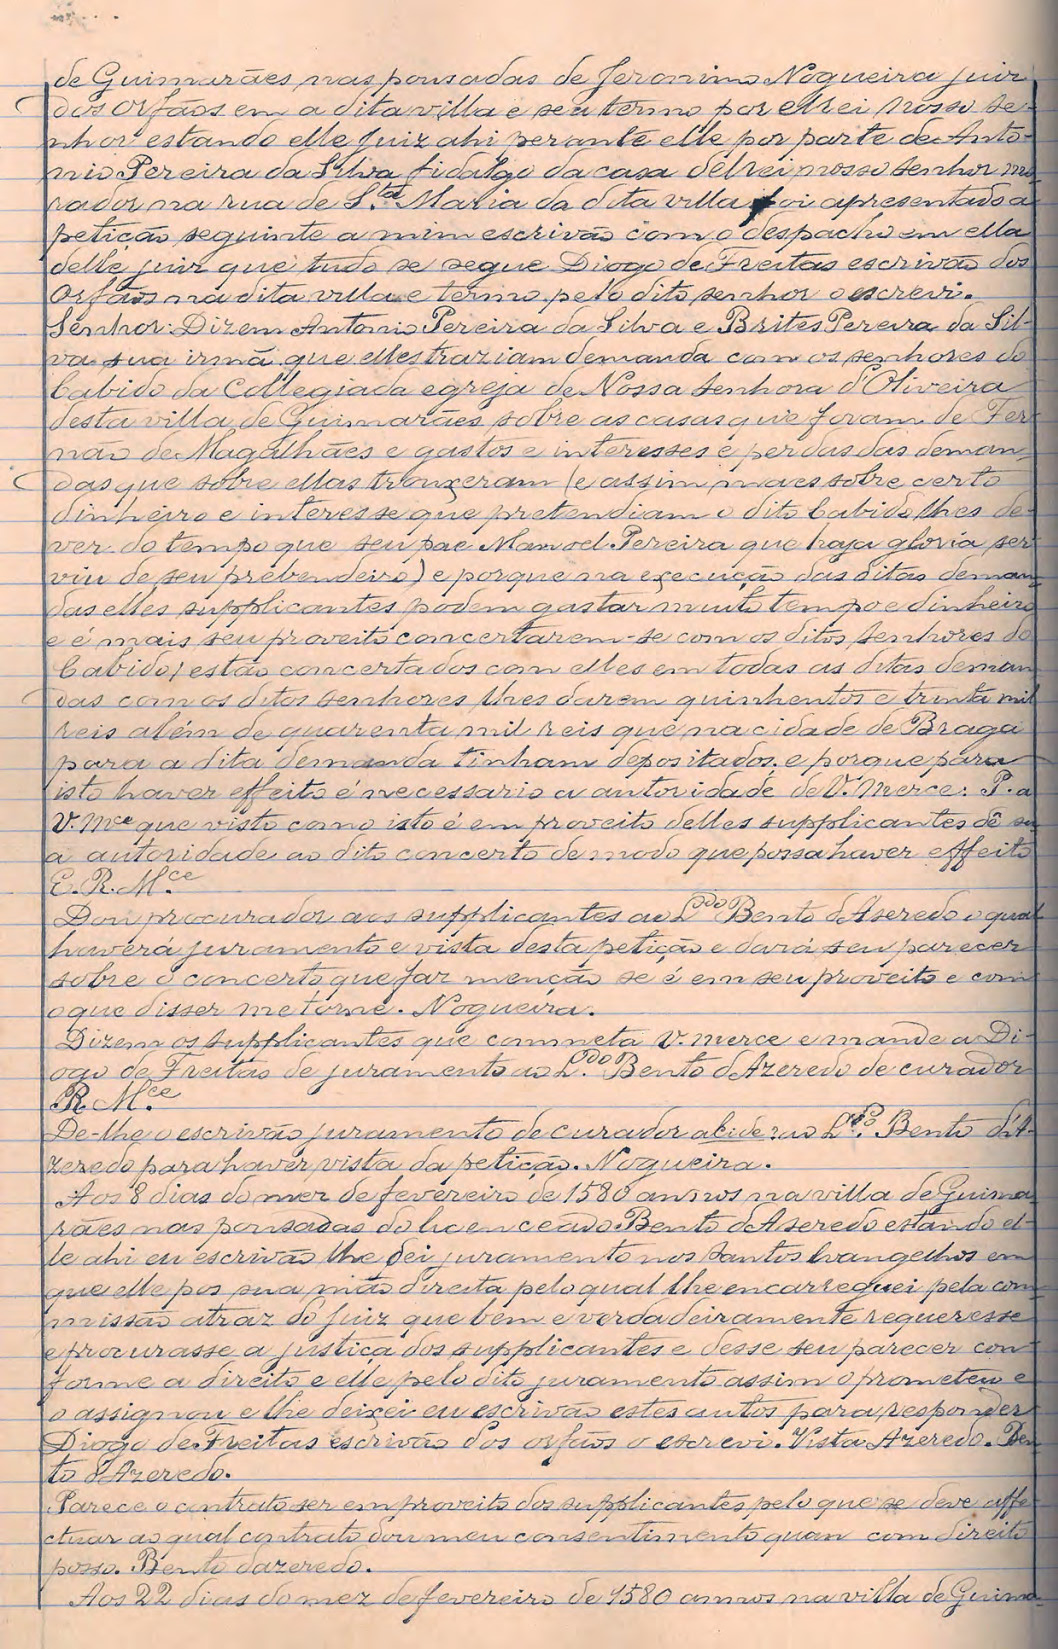 de Guimarães nas pousadas de Jeronimo Nogueira juiz
dos orfãos em a dita villa e seu termo por elrei nosso se-
nhor estando elle juiz ahi perante elle por parte de Anto-
nio Pereira da Silva fidalgo da casa delrei nosso senhor mo-
rador na rua de S.ta Maria da dita villa foi apresentado a
petição seguinte a mim escrivão com o despacho em ella
delle juiz que tudo se segue Diogo de Freitas escrivão dos
Orfãos na dita villa e termo pelo dito senhor o escrevi.
Senhor: Dizem Antonio Pereira da Silva e Brites Pereira da Sil-
va sua irmã que elles traziam demanda com os senhores do
Cabido da Collegiada egreja de Nossa Senhora d'Oliveira
desta villa de Guimarães sobre as casas que foram de Fer-
não de Magalhães e gastos e interesses e perdas das deman-
das que sobre ellas trouxeram (e assim mais sobre certo
dinheiro e interesse que pretendiam o dito Cabido lhes de-
ver do tempo que seu pae Manoel Pereira que haja gloria ser-
viu de seu prebendeiro) e porque na execução das ditas deman-
das elles supplicantes podem gastar muito tempo e dinheiro
e é mais seu proveito concertarem-se com os ditos senhores do
Cabido, estão concertados com elles em todas as ditas deman-
das com os ditos senhores lhes darem quinhentos e trinta mil
reis além de quarenta mil reis que na cidade de Braga
para a dita demanda tinham depositados. e porque para
isto haver effeito é necessario a autoridade de V. Merce. P. a
V. Mce que visto como isto é em proveito delles supplicantes dê su-
a autoridade ao dito concerto de modo que possa haver effeito
E. R. M.ce
Dou procurador aos supplicantes ao L.do Bento d'Aseredo o qual
haverá juramento e vista desta petição e dará seu parecer
sobre o concerto que faz menção se é em seu proveito e com
o que disser me torne. Nogueira.
Dizem os supplicantes que commeta V. merce e mande a Di-
ogo de Freitas de juramento ao L.do Bento d'Azeredo de curador
R. M.ce
De-lhe o escrivão juramento de curador ao L.do Bento d'A-
zeredo para haver vista da petição. Nogueira.
Aos 8 dias do mez de fevereiro de 1580 annos na villa de Guima-
rães nas pousadas do licenceado Bento d'Aseredo estando el-
le ahi eu escrivão lhe dei juramento nos Santos Evangelhos em
que elle pos sua mão direita pelo qual lhe encarreguei pela com-
missão atraz do Juiz que bem e verdadeiramente requeresse
e procurasse a justiça dos supplicantes e desse seu parecer con-
forme a direito e elle pelo dito juramento assim o prometeu e
o assignou e lhe deixei eu escrivão estes autos para responder
Diogo de Freitas escrivão dos orfãos o escrevi. Vista Azeredo. Ben-
to d'Azeredo.
Parece o contrato ser em proveito dos supplicantes pelo que se deve affe-
ctuar ao qual contrato dou meu consentimento quan com direito
posso. Bento dazeredo.
Aos 22 dias do mez de fevereiro de 1580 annos na villa de Guima-